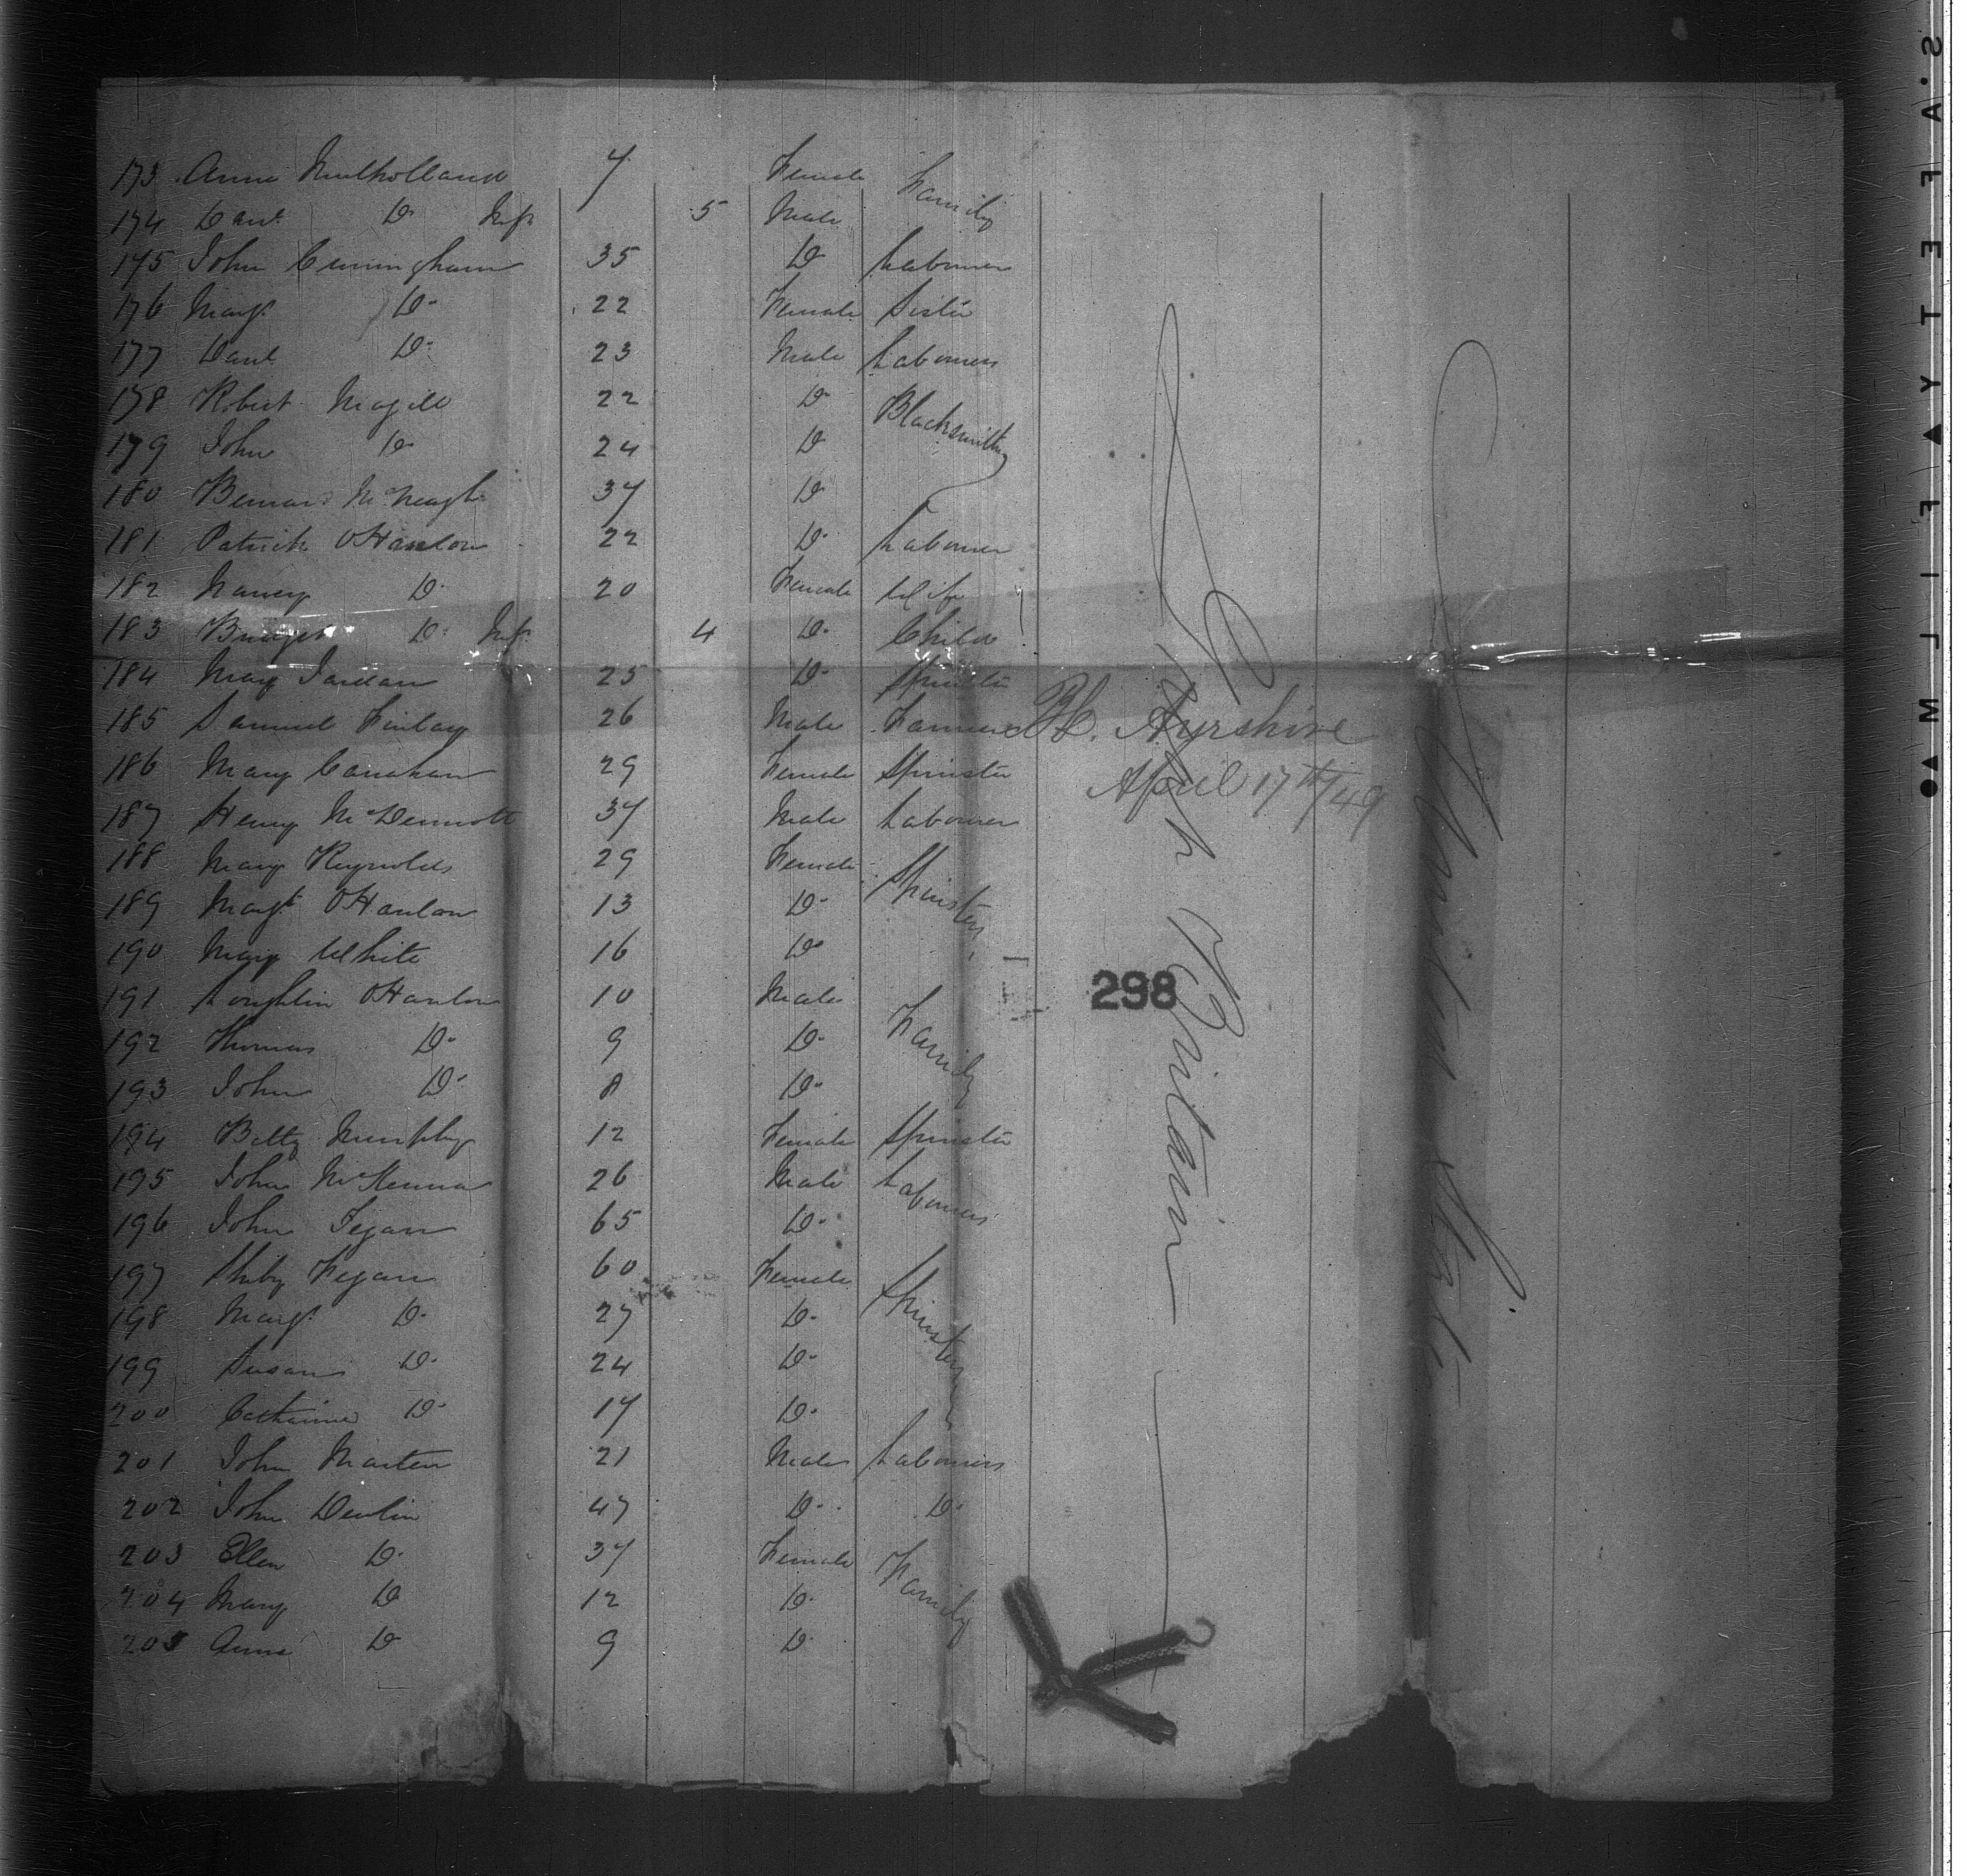 173 Anne Mulholland 7 Female Family
174 Danl. Do. Inft. 5 Male
175 John Cunningham 35 Do Labourer
176 Margt. Do. 22 Female Sister
177 Danl Do. 23 Male Labourers
178 Robert Magill 22 Do. Blacksmiths
179 John Do 24 Do
180 37 Do
181 Patrick OHanlon 22 Do. Labourer
182 Nancy Do. 20 Female Wife
183 Bridget Do. Inft. 4 Do. Child
184 Mary Jordan 25 Do. Spinster
185 Samuel Finlay 26 Male Farmer
186 Mary 29 Female Spinster
187 Henry McDermott 37 Male Labourer
188 Mary Reynolds 29 Female Spinsters
189 Margt OHanlon 13 Do.
190 Mary White 16 Do
191 Loughlin OHanlon 10 Male Family
192 Thomas Do. 9 Do.
193 John Do. 8 Do.
194 Betty Murphy 12 Female Spinster
195 John McKenna 26 Male Labourers
196 John Fegan 65 Do.
197 Fegan 60 Female Spinsters
198 Margt. Do. 27 Do.
199 Susan Do. 24 Do.
200 Catharine Do. 17 Do.
201 John Marten 21 Male Labourers
202 John Devlin 47 Do. Do.
203 Ellen Do. 37 Female Family
204 Mary Do 12 Do.
205 Anne Do 9 Do.
Bk. Ayrshire
April 17th/49
298
Great Britain
United States
S.A. FETYAFILM